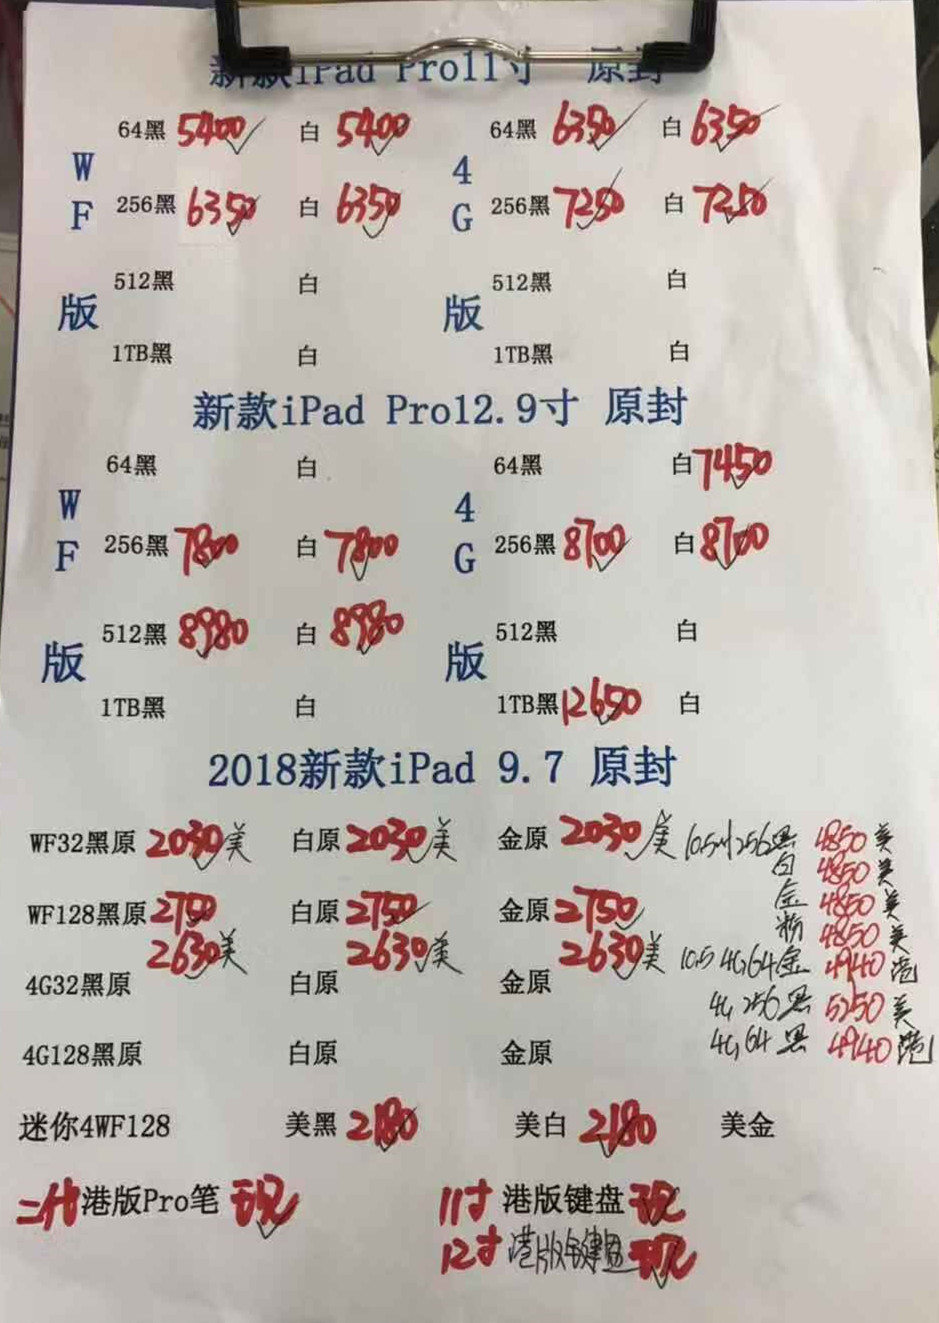 新款iPad Pro11寸 原封
64黑 5400 白 5400 64黑 6350 白 6350
W 4
F 256黑 6350 白 6350 G 256黑 7250 白 7250
512黑 白 512黑 白
版 版
1TB黑 白 1TB黑 白
新款iPad Pro12.9寸 原封
64黑 白 64黑 白 7450
W 4
F 256黑 7800 白 7800 G 256黑 8700 白 8700
512黑 8980 白 8980 512黑 白
版 版
1TB黑 白 1TB黑 12650 白
2018新款iPad 9.7 原封
WF32黑原 2030美 白原 2030美 金原 2030美 10.5寸256黑 4850美
白 4850美
WF128黑原 2750 白原 2750 金原 2750 金 4850美
粉 4850美
2630美 2630美 2630美 10.5 4G,64金 4940港
4G32黑原 白原 金原
4G 256黑 5250美
4G128黑原 白原 金原 4G,64黑 4940港
迷你4WF128 美黑 2180 美白 2180 美金
二代港版Pro笔 现 11寸 港版键盘 现
12寸 港版键盘 现